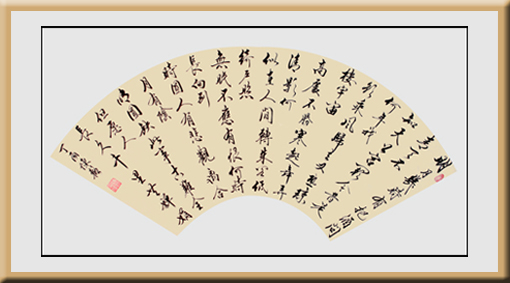 明月幾時有把酒問
青天不
知天上宮闕今夕是
何年我
欲乘風歸去又恐瓊
樓玉宇
高處不勝寒起舞弄
清影何
似在人間轉朱閣低
綺戶照
無眠不應有恨何時
長向別
時圓人有悲歡離合
月有陰
晴圓缺此事古難全
但願人
長久千里共嬋娟